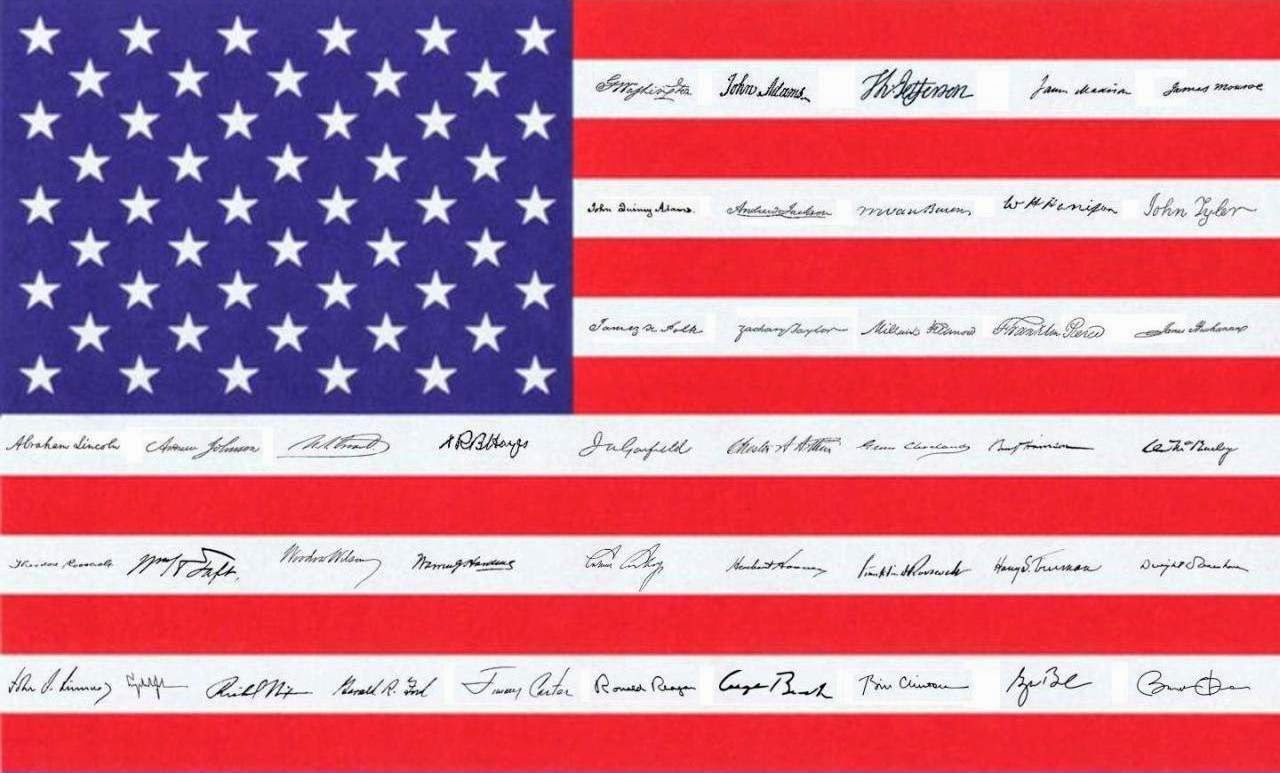 GWashington John Adams Th Jefferson James Madison James Monroe
John Quincy Adams Andrew Jackson M Van Buren W H Harrison John Tyler
James K Polk Zachary Taylor Millard Fillmore Franklin Pierce James Buchanan
Abraham Lincoln Andrew Johnson U.S. Grant R B Hayes J A Garfield Chester A Arthur Grover Cleveland Benj Harrison Wm McKinley
Theodore Roosevelt Wm H Taft. Woodrow Wilson Warren G Harding Calvin Coolidge Herbert Hoover Franklin D Roosevelt Harry S. Truman Dwight D Eisenhower
John F. Kennedy Richard Nixon Gerald R. Ford Jimmy Carter Ronald Reagan George Bush Bill Clinton